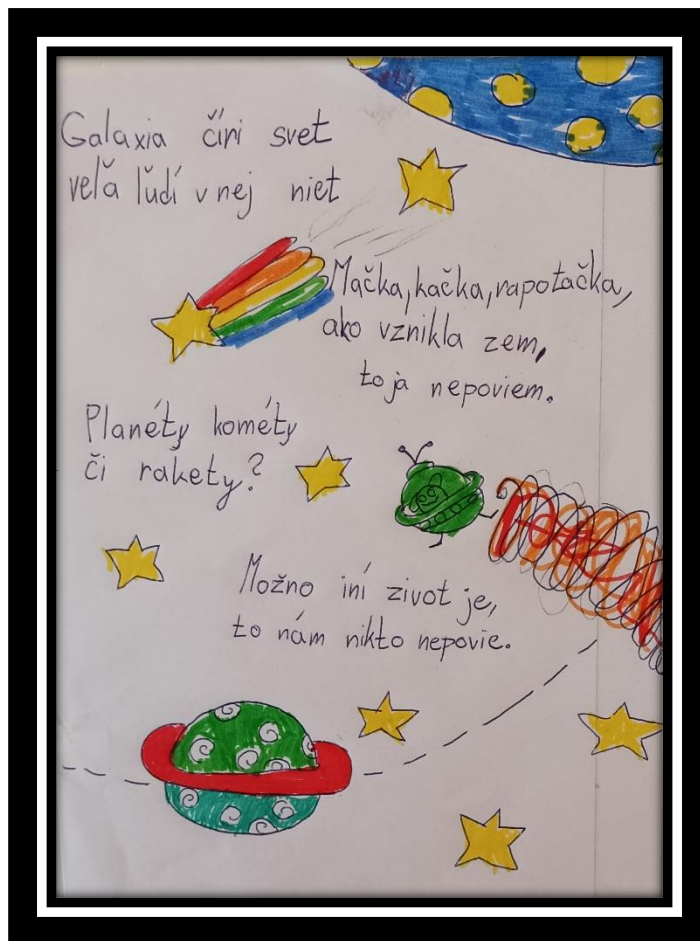 Galaxia číri svet
veľa ľudí v nej niet
Mačka, kačka, rapotačka,
ako vznikla zem,
to ja nepoviem.
Planéty kométy
či rakety?
Možno iní zivot je,
to nám nikto nepovie.